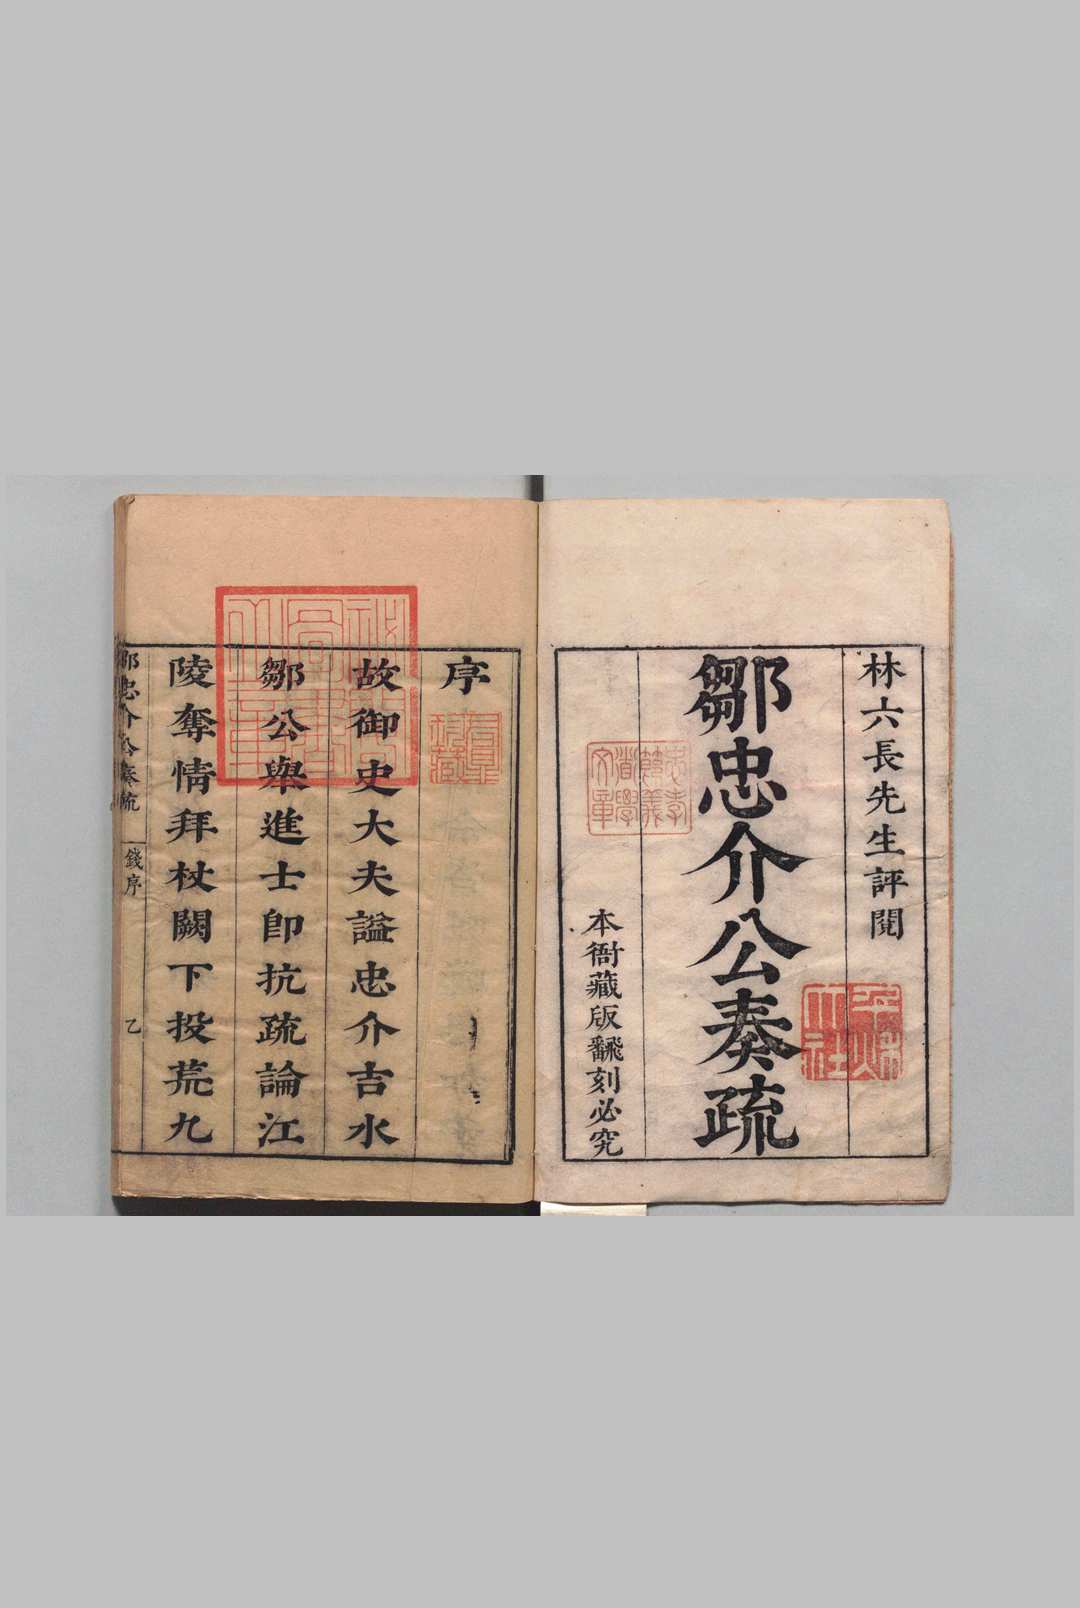 林六長先生評閱
鄒忠介公奏疏
本衙藏版飜刻必究
忠孝
節義
道學
文章
序
故御史大夫謚忠介吉水
鄒公舉進士卽抗疏論江
陵奪情拜杖闕下投荒九
鄒忠介公奏疏
錢序
乙